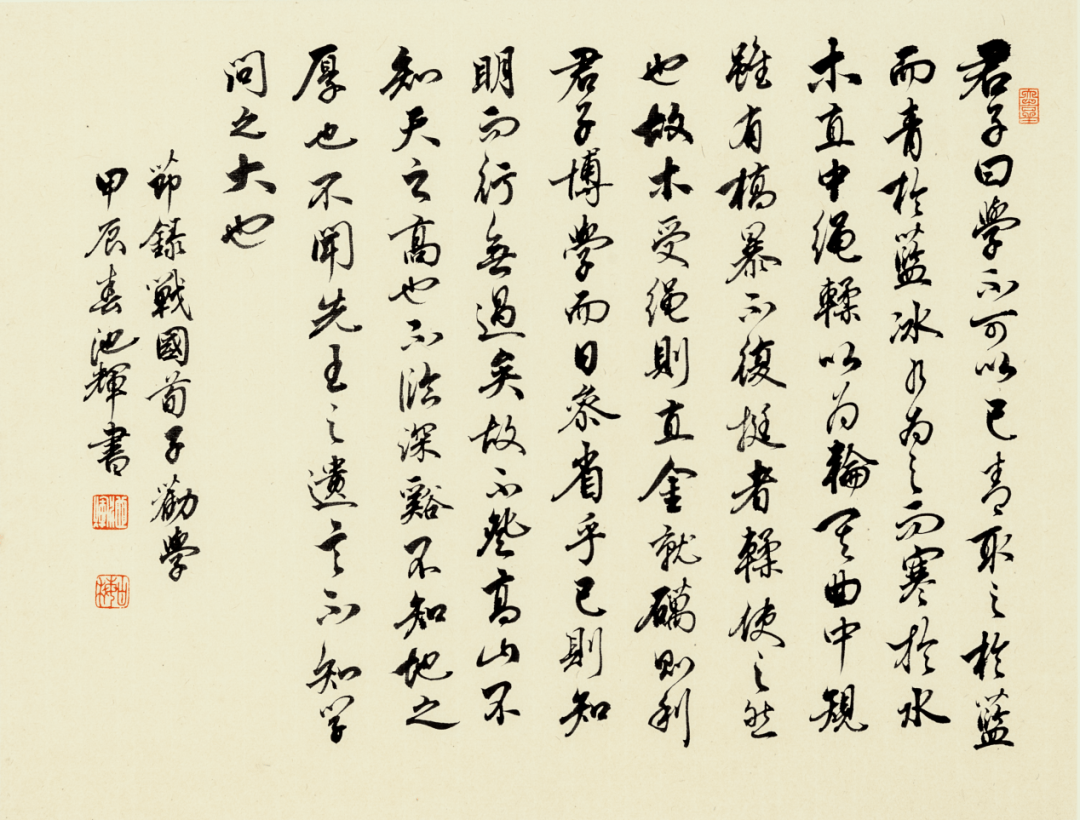 君子曰學不可以已青取之於藍
而青於藍冰水為之而寒於水
木直中繩輮以為輪其曲中規
雖有槁暴不復挺者輮使之然
也故木受繩則直金就礪則利
君子博學而日參省乎己則知
明而行無過矣故不登高山不
知天之高也不臨深谿不知地之
厚也不聞先王之遺言不知學
問之大也
節錄戰國荀子勸學
甲辰春池輝書